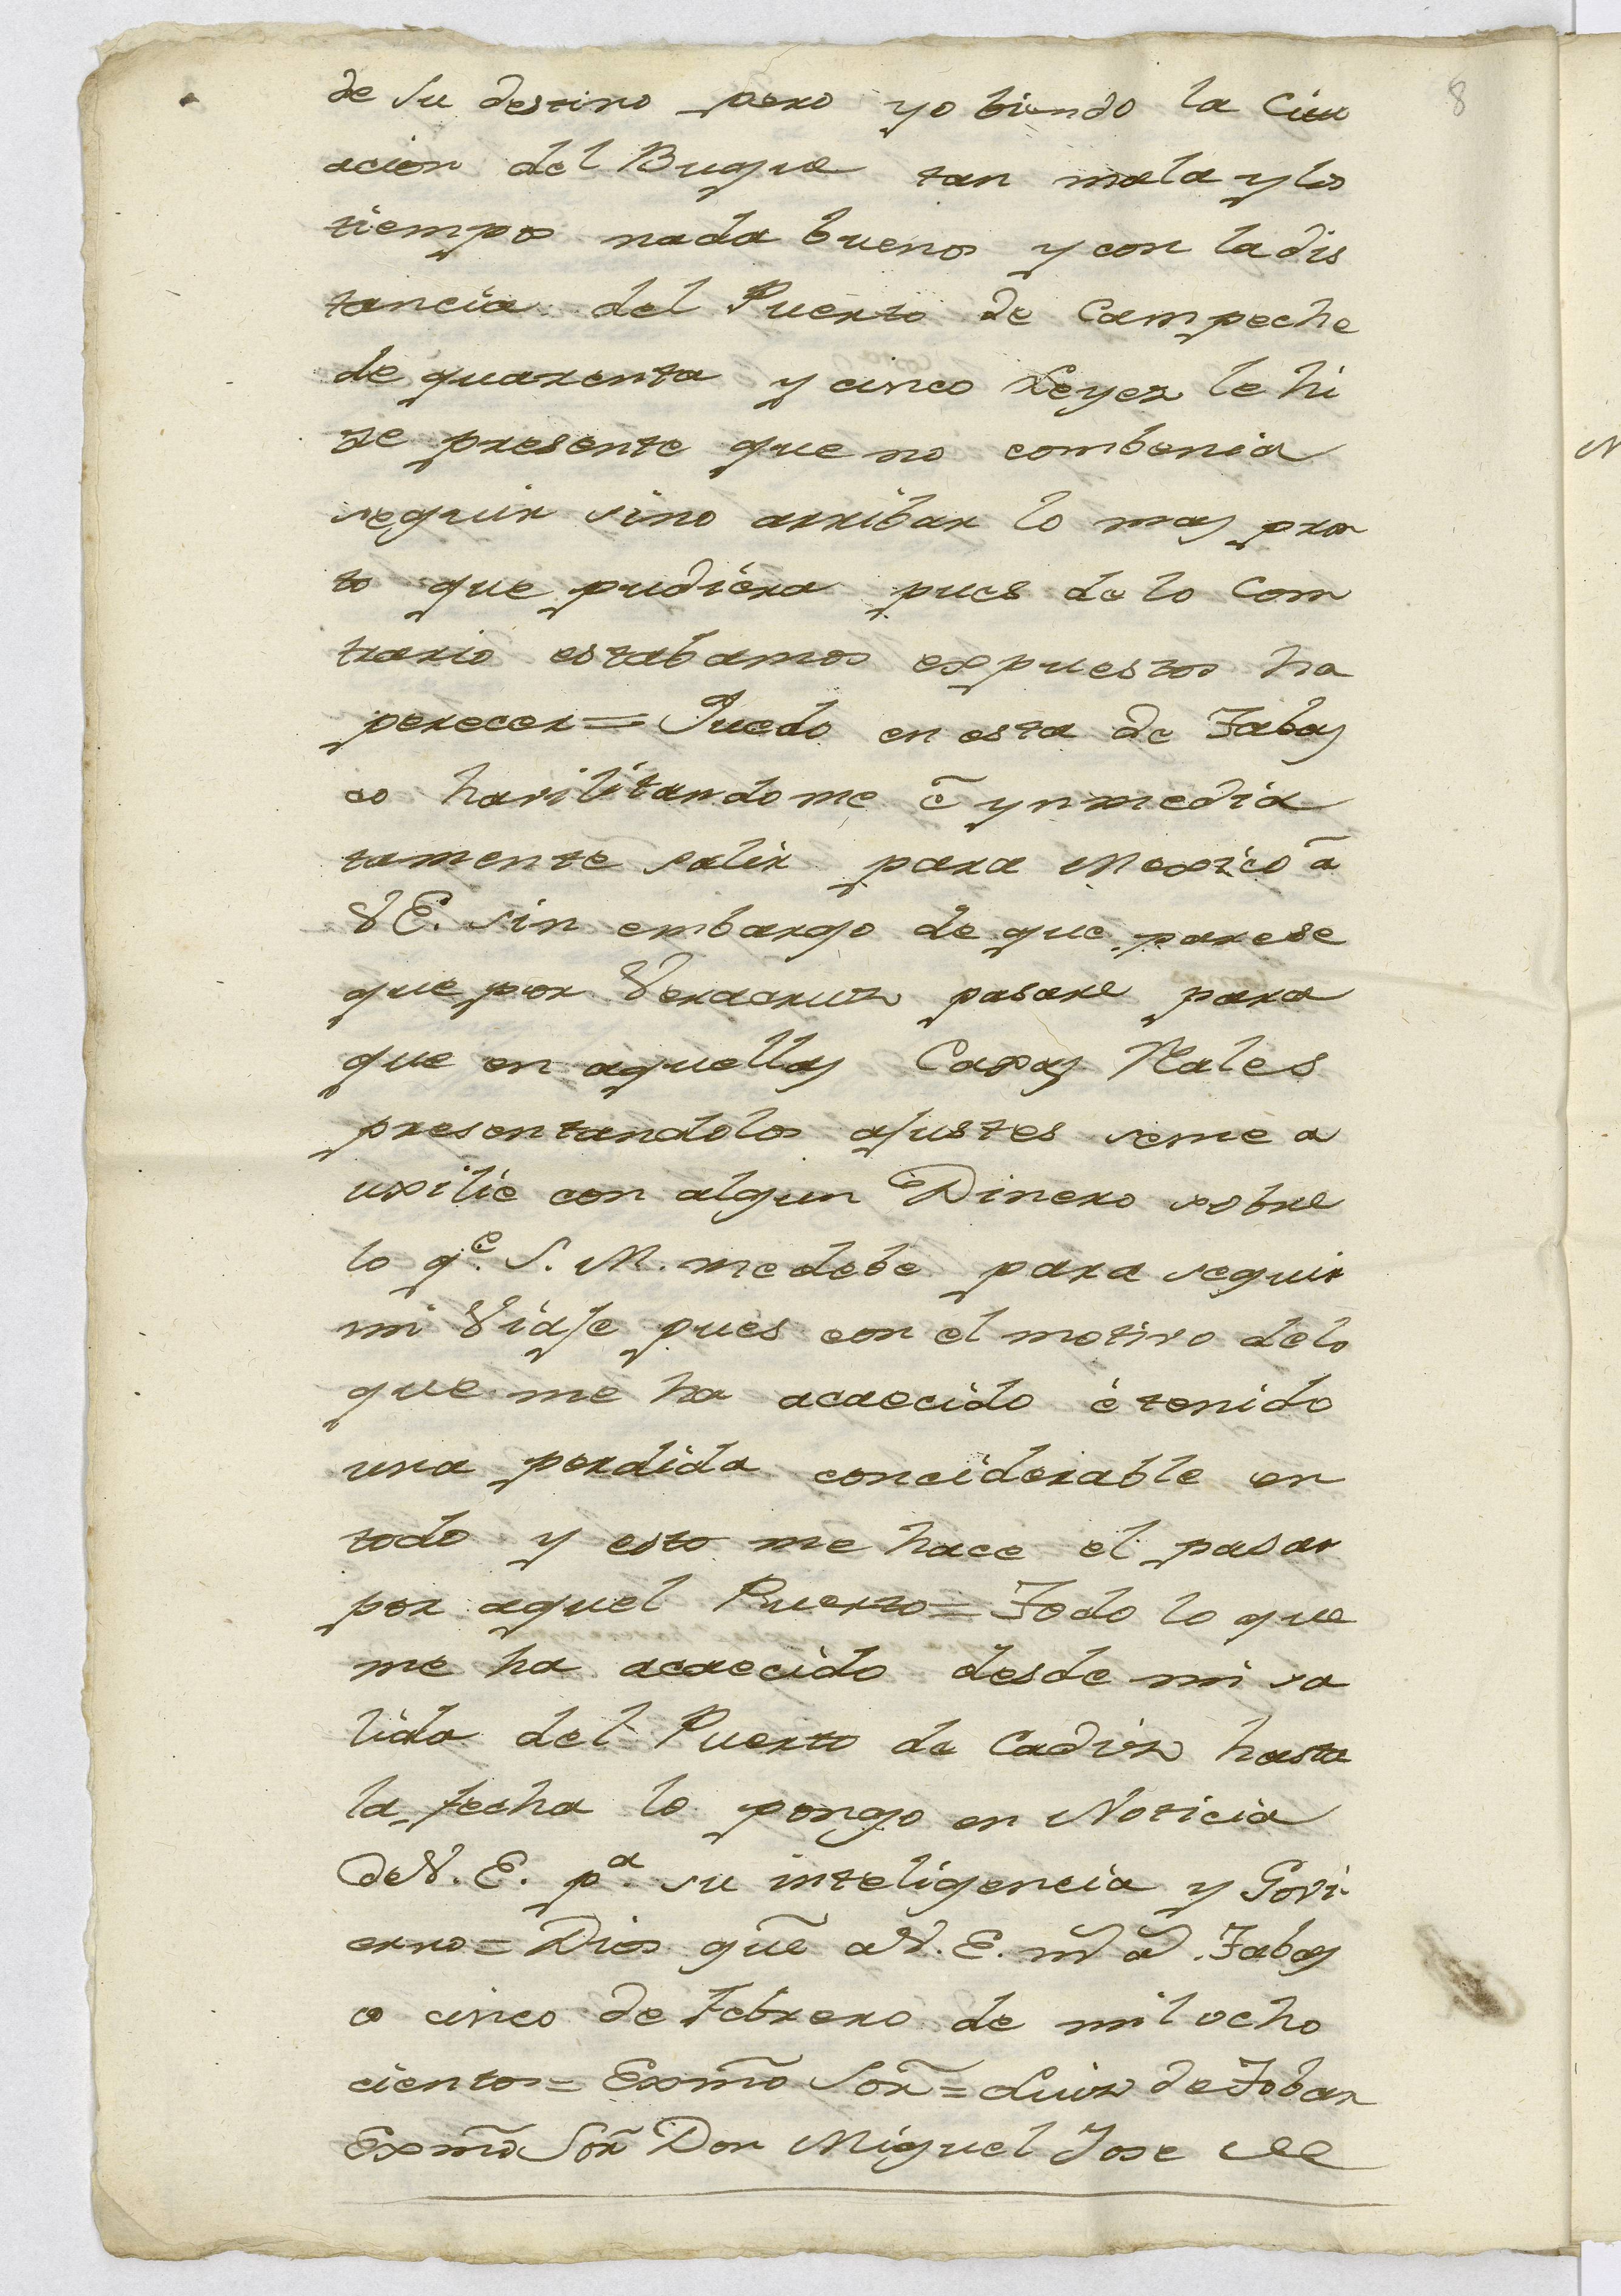 8
de su destino pero yo biendo la Citu
acion del Buque tan mala y los
tiempos nada buenos y con la dis
tancia del Puerto de Campeche
de quarenta y cinco Leyes le hi
ze presente que no combenia
seguir sino arribar lo mas pron
to que pudiera pues de lo Con
trario estabamos expuestos ha
perecer = Quedo en esta de Tabas
co havilitandome é ynmedia
tamente salir para Mexico â
VE. sin embargo de que parese
que por Veracruz pasare para
que en aquellas Caxas Rales
presentandolos ajustes seme a
uxilie con algun Dinero sobre
lo qe. S. M. medebe para seguir
mi Viaje pues con el motivo delo
que me ha acaecido è tenido
una perdida conciderable en
todo y esto me hace el pasar
por aquel Puerto = Todo lo que
me ha acaecido desde mi sa
lida del Puerto de Cadiz hasta
la fecha lo pongo en Noticia
deV. E. pa. su inteligencia y Govi
erno = Dios gue. aV. E. ms. as. Tabas
co cinco de Febrero de mil ocho
cientos = Exmo. Sor. = Luiz de Tobar
Exmo. Sor. Don Miguel Jose de
N